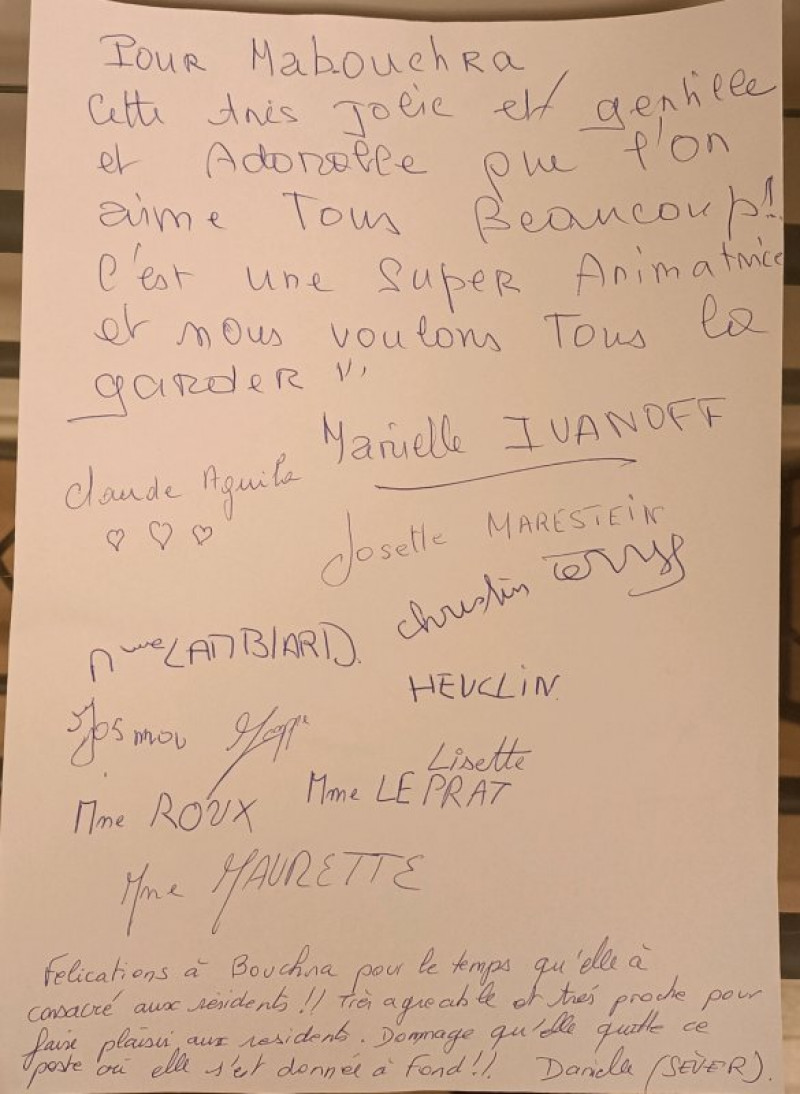 Pour Mabouchra
Cette très Jolie et gentille
et Adorable que l'on
aime Tous Beaucoup!
C'est une Super Animatrice
et nous voulons Tous la
garder !!
Marielle IVANOFF
Claude Aguila
♡ ♡ ♡
Josette MARESTEIN
Christin
Mme LAMBIARD.
HEUCLIN
Josmou
Lisette
Mme ROUX Mme LE PRAT
Mme MAURETTE
Félications à Bouchra pour le temps qu'elle à
consacré aux résidents !! Très agreable et très proche pour
faire plaisir aux residents. Dommage qu'elle quitte ce
poste où elle s'est donnée à fond !! Danielle (SÈVER).